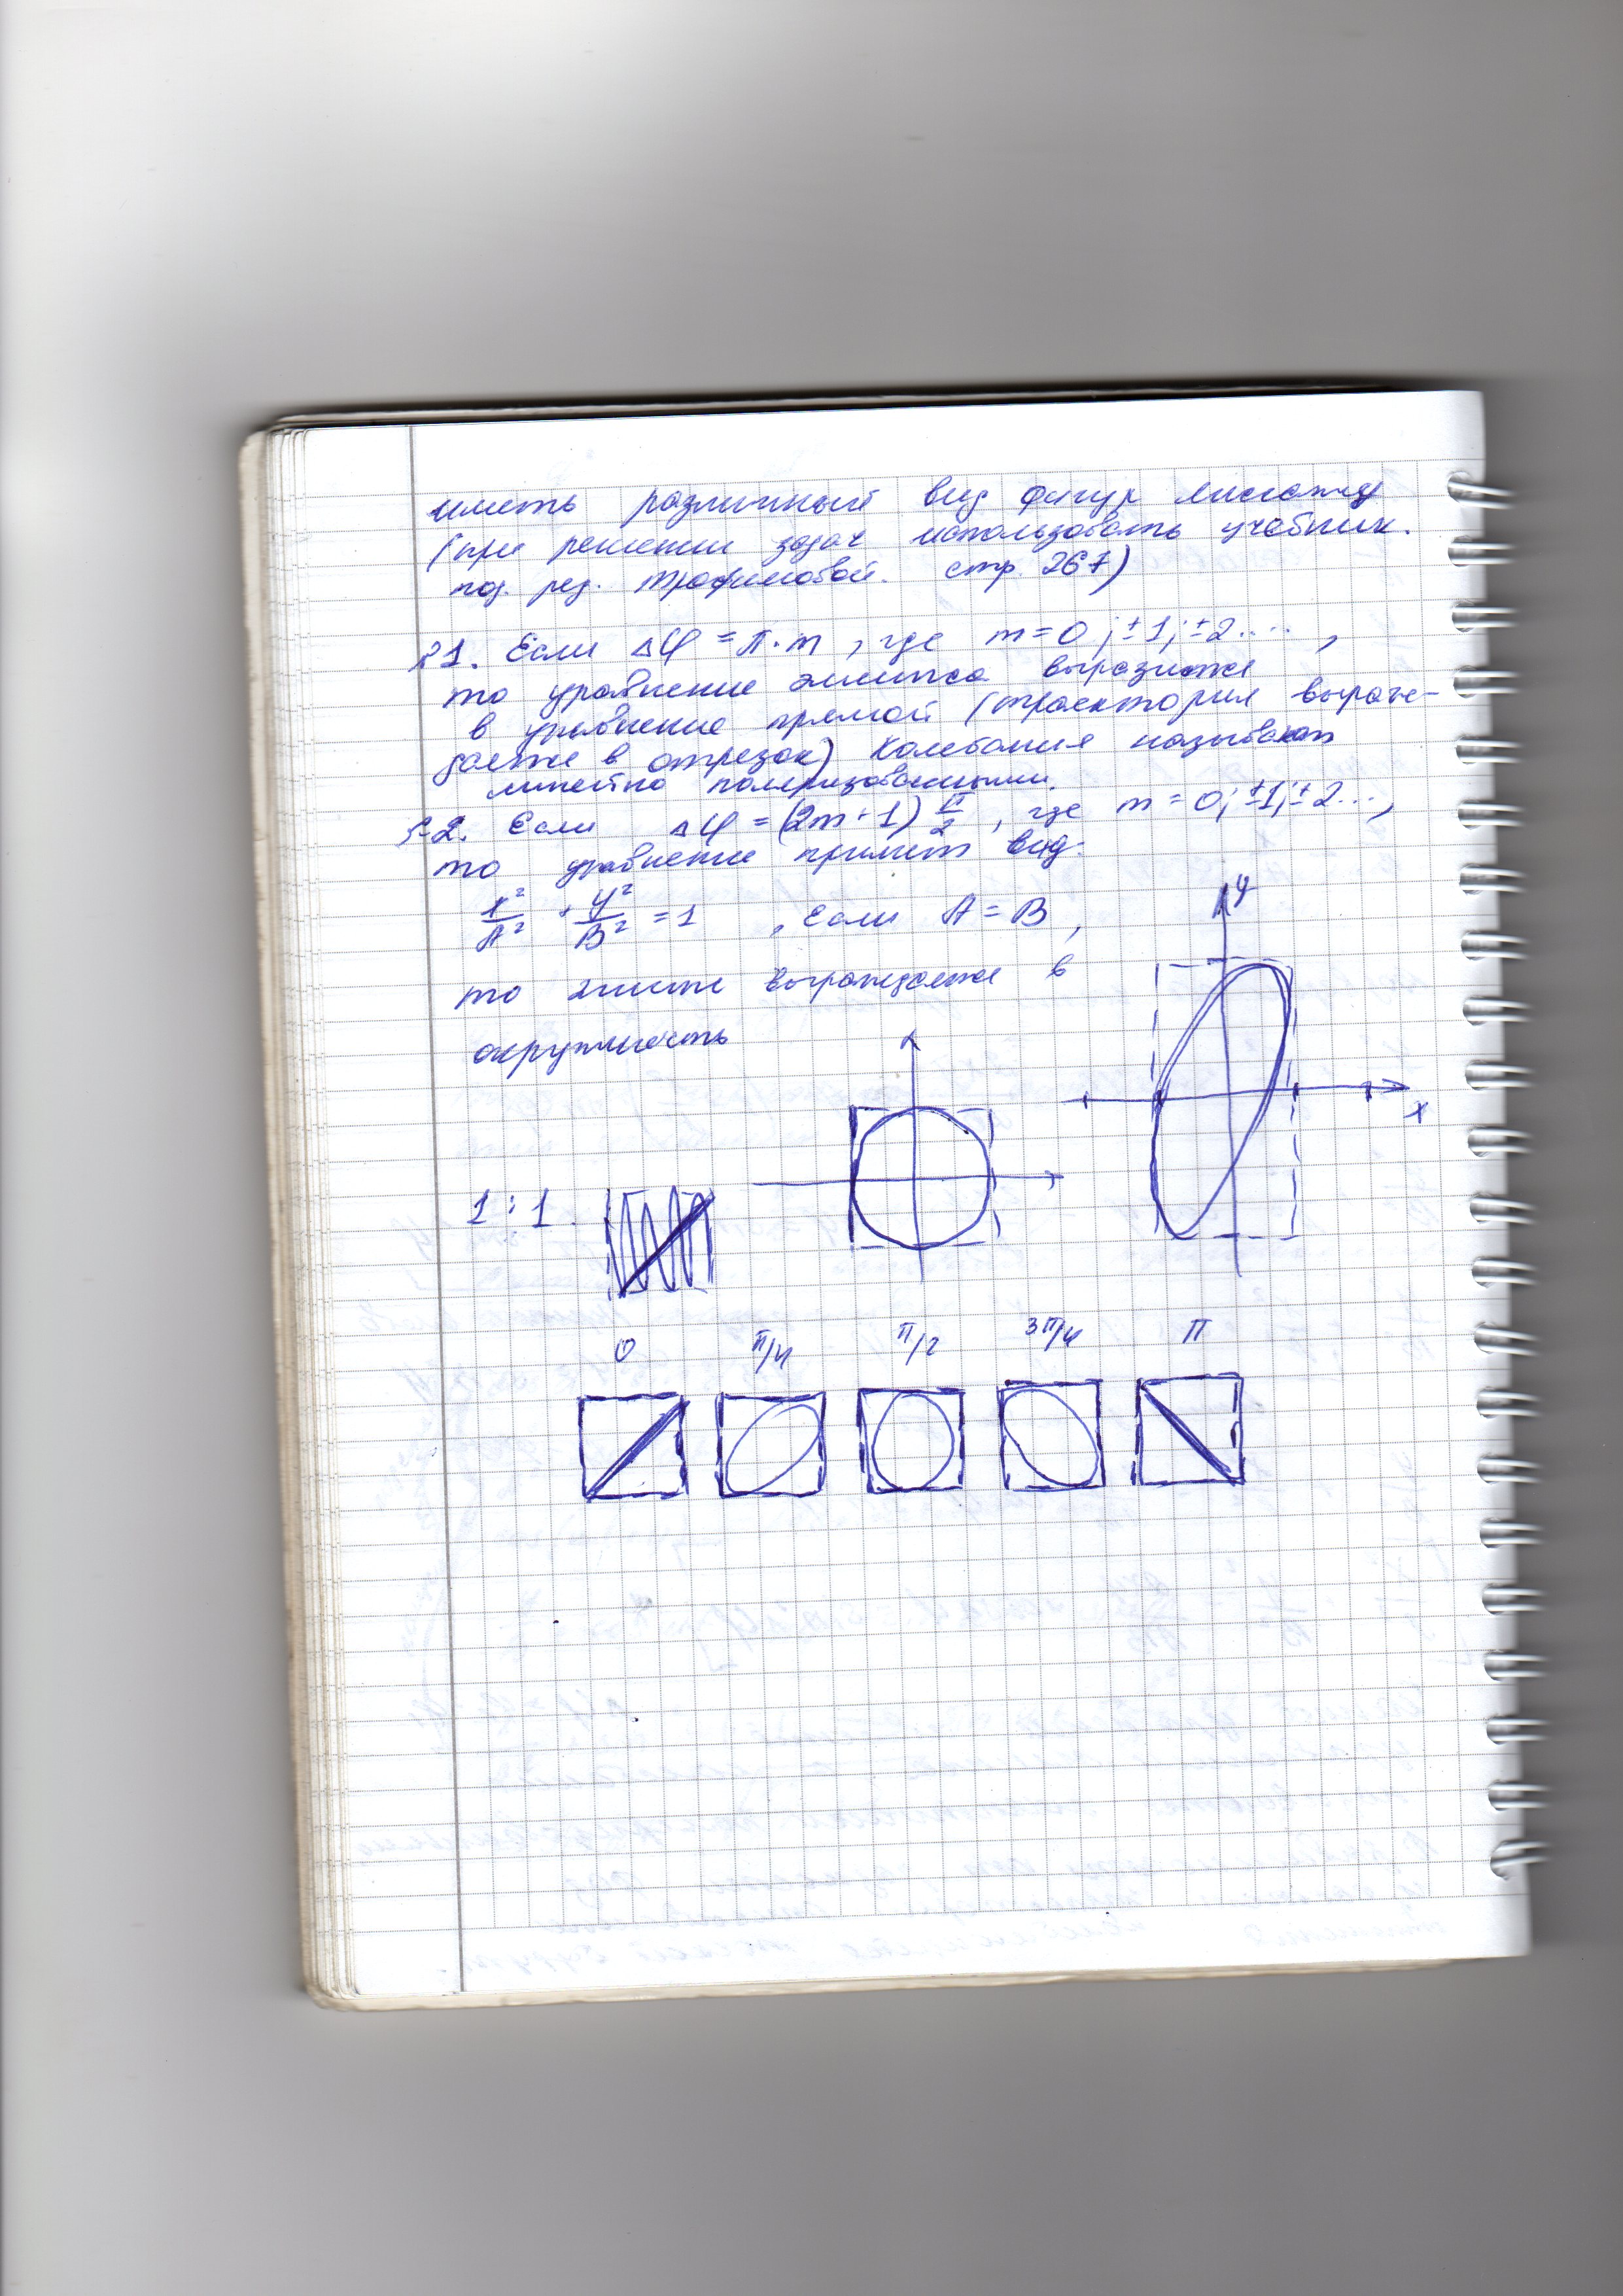 иметь различный вид фигур Лиссажу
(при решении задач использовать учебник.
под. ред. Трофимовой. стр. 267)
1. Если Δφ = π·m, где m = 0; ±1; ±2....,
то уравнение эллипса выразится
в уравнение прямой (траектория вырож-
дается в отрезок) Колебания называют
линейно поляризованными.
2. Если Δφ = (2m+1) π/2, где m = 0; ±1; ±2...,
то уравнение примет вид:
x²/A² + y²/B² = 1, если A = B,
y
то эллипс вырождается в
окружность
x
1:1.
0 π/4 π/2 3π/4 π